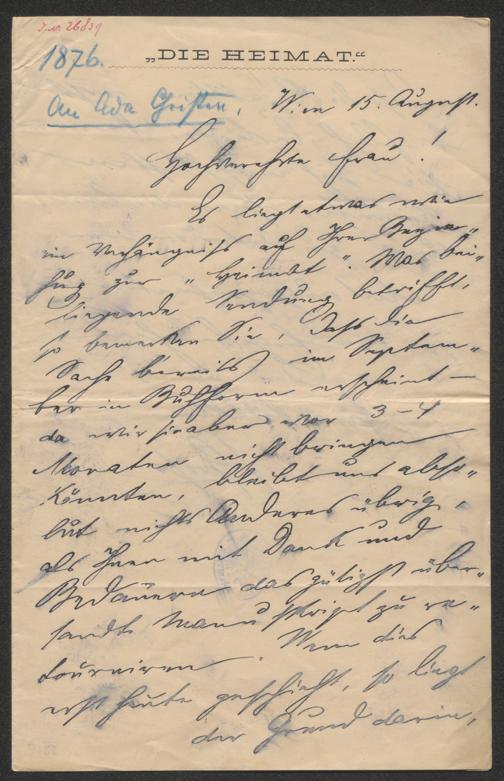 J.N. 26839
1876.
„DIE HEIMAT.“
An Ada Christen,
Wien 15. August.
Hochverehrte Frau!
Es liegt etwas wie
ein Verhängniß auf Ihrer Bezie-
hung zur „Heimat“. Was bei-
liegende Sendung betrifft,
so bemerken Sie, daß die
Sache bereits im Septem-
ber in Buchform erscheint —
da wir sie aber vor 3–4
Monaten nicht bringen
könnten, bleibt uns abso-
lut nichts Anderes übrig,
als Ihnen mit Dank und
Bedauern das gütigst über-
sandte Manuskript zu re-
tourniren. Wenn dies
erst heute geschieht, so liegt
der Grund darin,